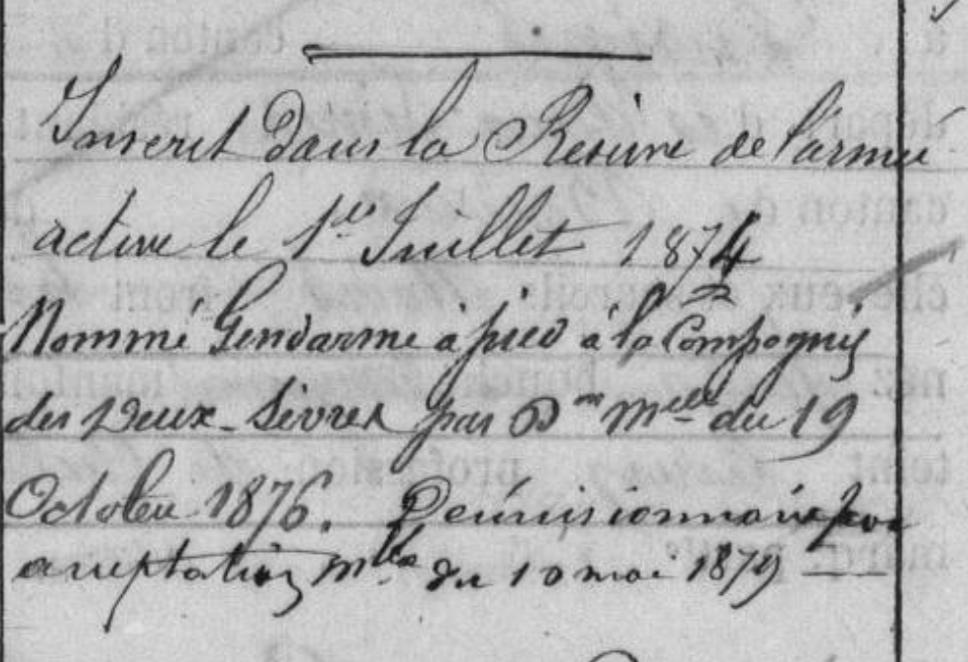 Inscrit dans la Réserve de l'armée
active le 1er Juillet 1874
Nommé Gendarme à pied à la Compagnie
des Deux-Sèvres par Don Mlle du 19
Octobre 1876. Démissionnaire par
acceptation Mlle du 10 mai 1879